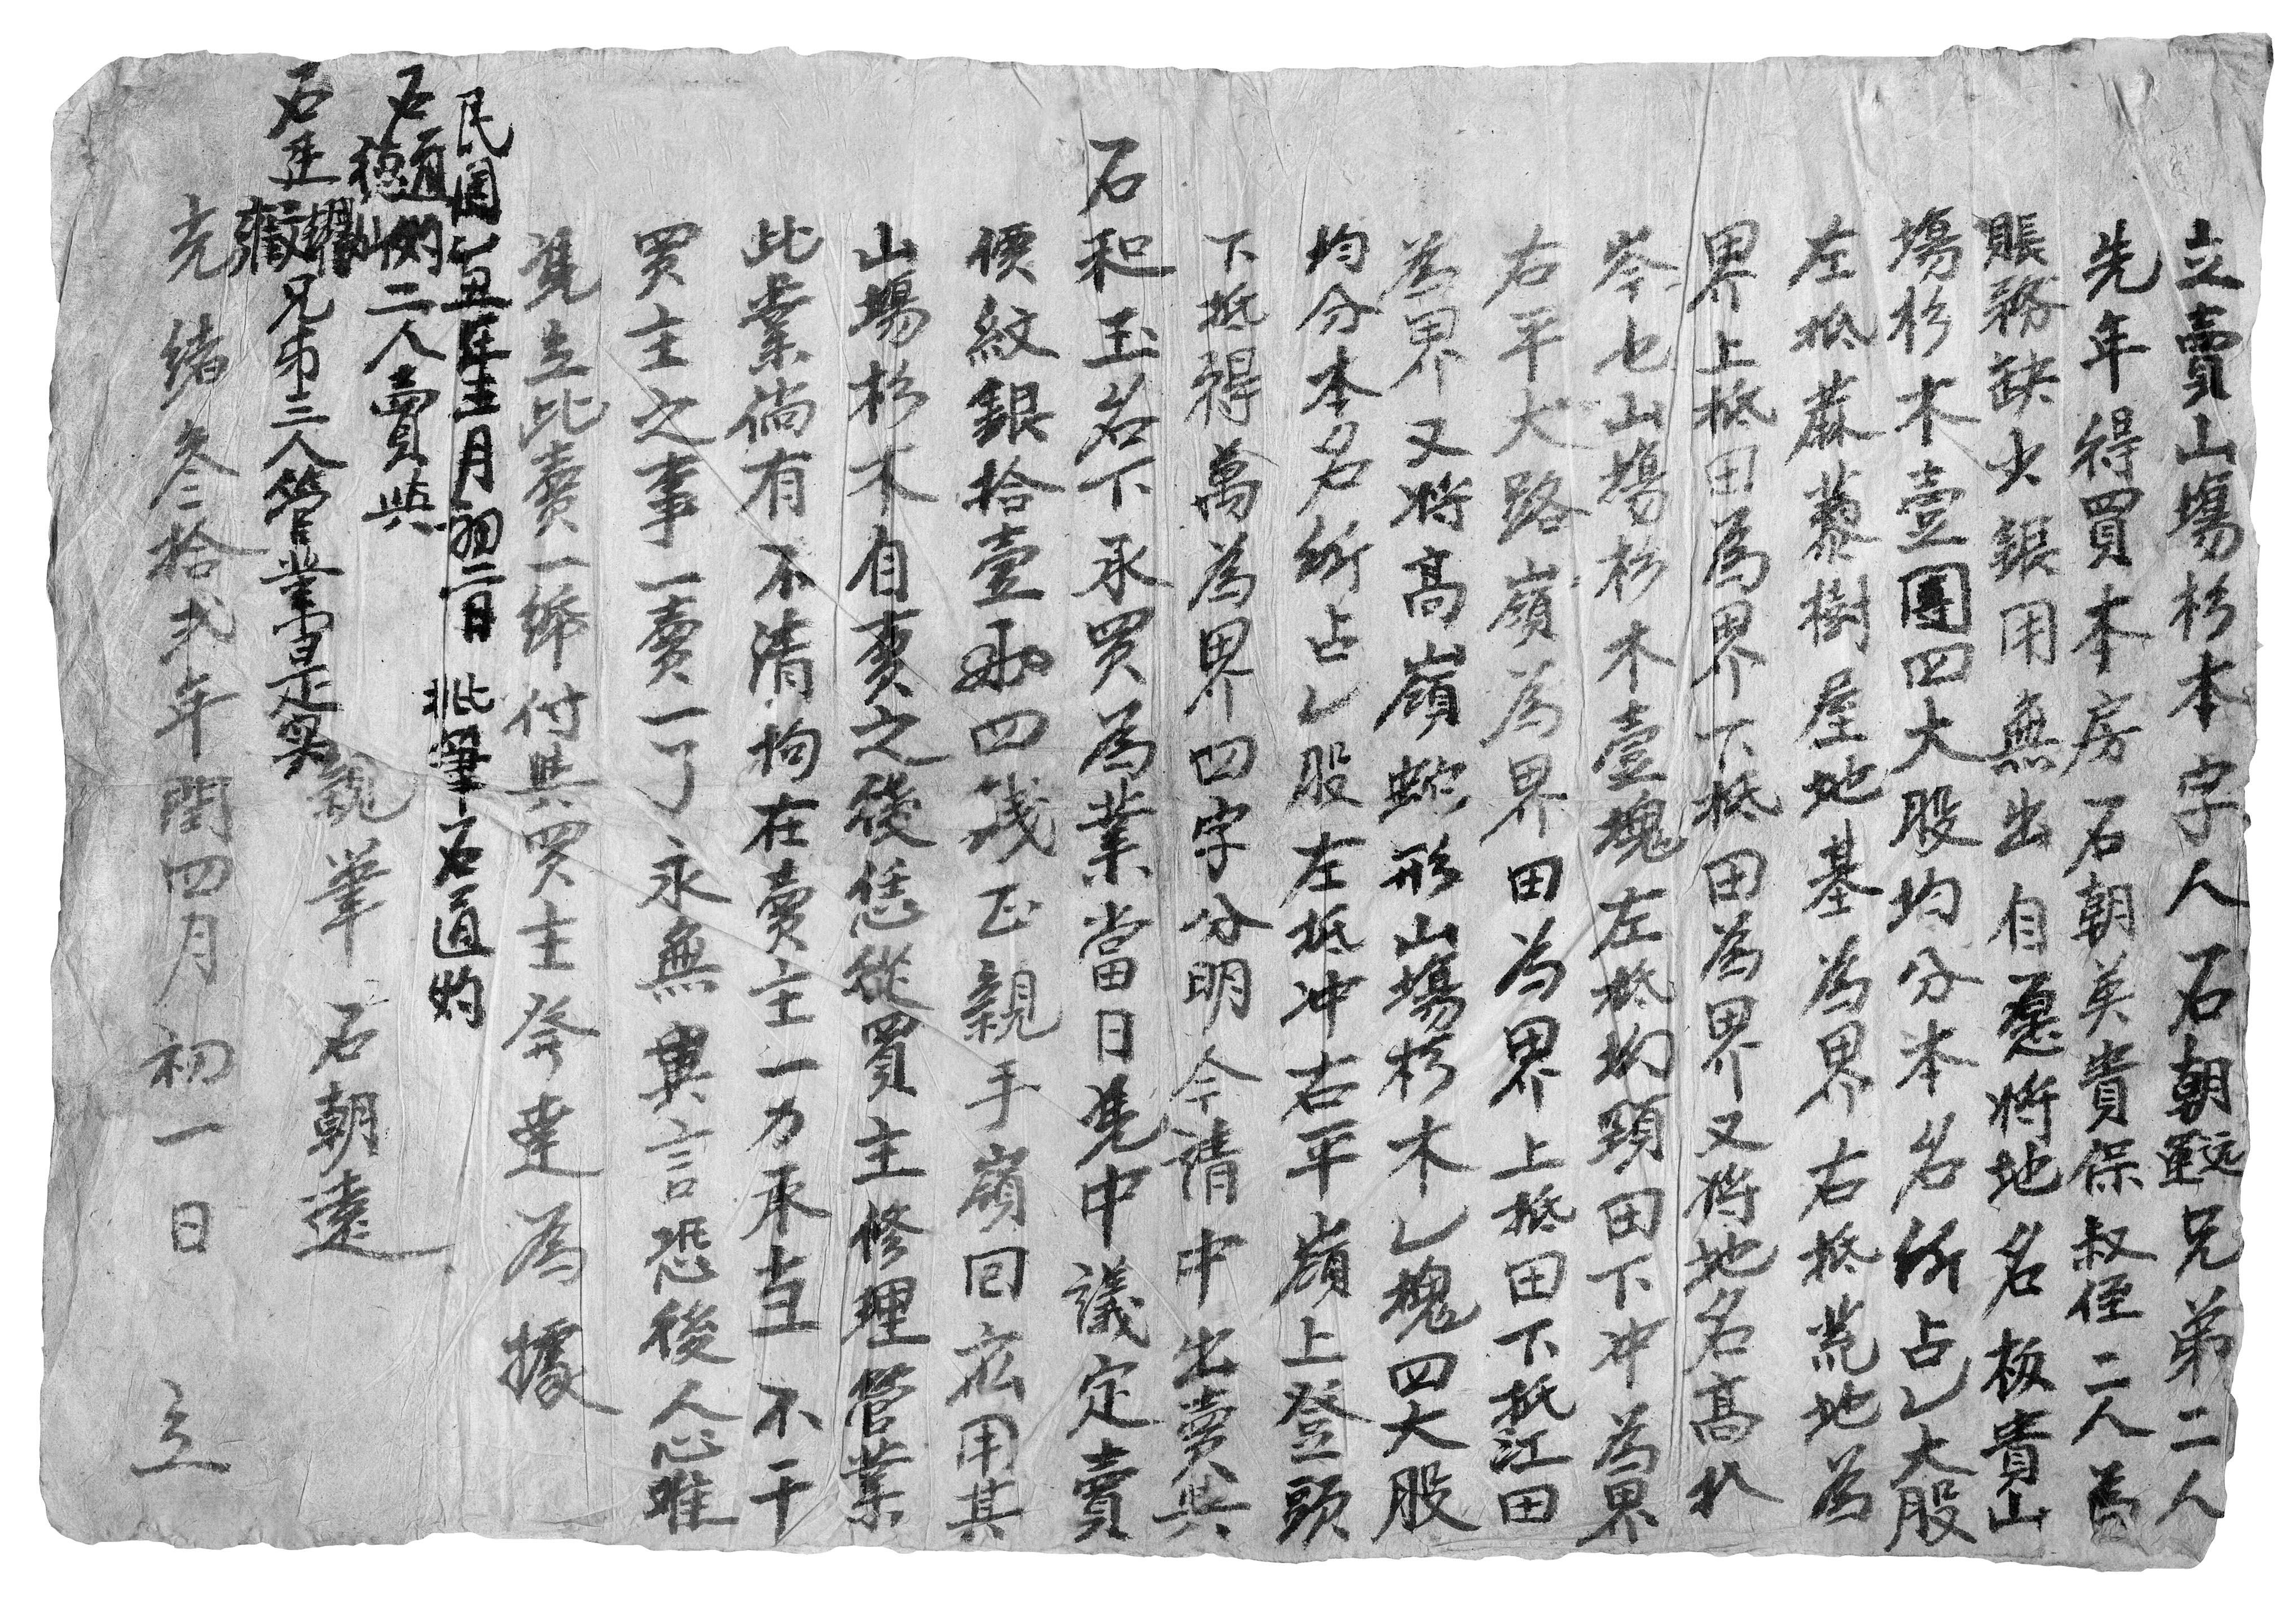 立賣山塲杉本字人石朝遠運兄弟二人
先年得買本房石朝英貴保叔侄二人為
賬務缺少銀用無出自愿將地名板貴山
塲杉木壹團四大股均分本名所占乙大股
左抵蔴藜樹屋地基為界右抵荒地為
界上抵田為界下抵田為界又將地名高
岑七山塲杉木壹塊左抵均頭田下冲為界
右平大路嶺為界田為界上抵田下抵江田
為界又將高嶺蛇形山塲杉木乙塊四大股
均分本名所占乙股左抵冲右平嶺上登頭
下抵得萬為界四字分明今請中出賣與
石和玉名下承買為業當日凴中議定賣
價紋銀拾壹両四錢正親手嶺回應用其
山塲杉木自賣之後恁從買主修理營業
此業倘有不清拘在賣主一力承当不干
買主之事一賣一了永無異言恐後人心难
凴立此賣一紙付與買主發達為據
民國乙丑年五月初二日批筆石道灼
石道灼德山二人賣與
石廷兄弟三人管業實是实
親筆石朝遠
光緒叁拾弍年閏四月初一日立